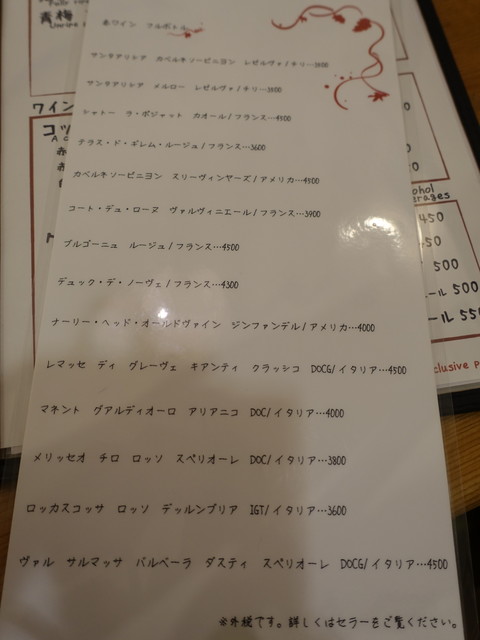 赤ワイン フルボトル
サンタアリシア カベルネソービニヨン レゼルヴァ/チリ…3800
サンタアリシア メルロー レゼルヴァ/チリ…3800
シャトー ラ・ボジャット カオール/フランス…4300
テラス・ド・ギレム・ルージュ/フランス…3600
カベルネソービニヨン スリーヴィンヤーズ/アメリカ…4500
コート・デュ・ローヌ ヴァルヴィニエール/フランス…3900
ブルゴーニュ ルージュ/フランス…4500
デュック・デ・ノーヴェ/フランス…4300
ナーリー・ヘッド・オールドヴァイン ジンファンデル/アメリカ…4000
レマッセ ディ グレーヴェ キアンティ クラッシコ DOCG/イタリア…4500
マネント グアルディオーロ アリアニコ DOC/イタリア…4000
メリッセオ チロ ロッソ スペリオーレ DOC/イタリア…3800
ロッカスコッサ ロッソ デッルンブリア IGT/イタリア…3600
ヴァル サルマッサ バルベーラ ダスティ スペリオーレ DOCG/イタリア…4500
※外税です。詳しくはセラーをご覧ください。
青梅
ワイン
コッ
ohol
erages
450
50
500
ール 500
ール 55
clusive p